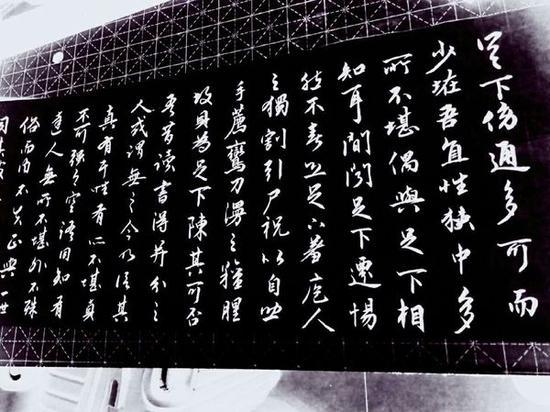 足下傍通多可而
少怪吾直性狹中多
所不堪偶與足下相
知耳間聞足下遷惕
然不喜恐足下羞庖人
之獨割引尸祝以自助
手薦鸞刀漫之羶腥
故具為足下陳其可否
吾昔讀書得并介之
人或謂無之今乃信其
真有耳性有所不堪真
不可強今空語同知有
達人無所不堪外不殊
俗而内不失正與一世
同其